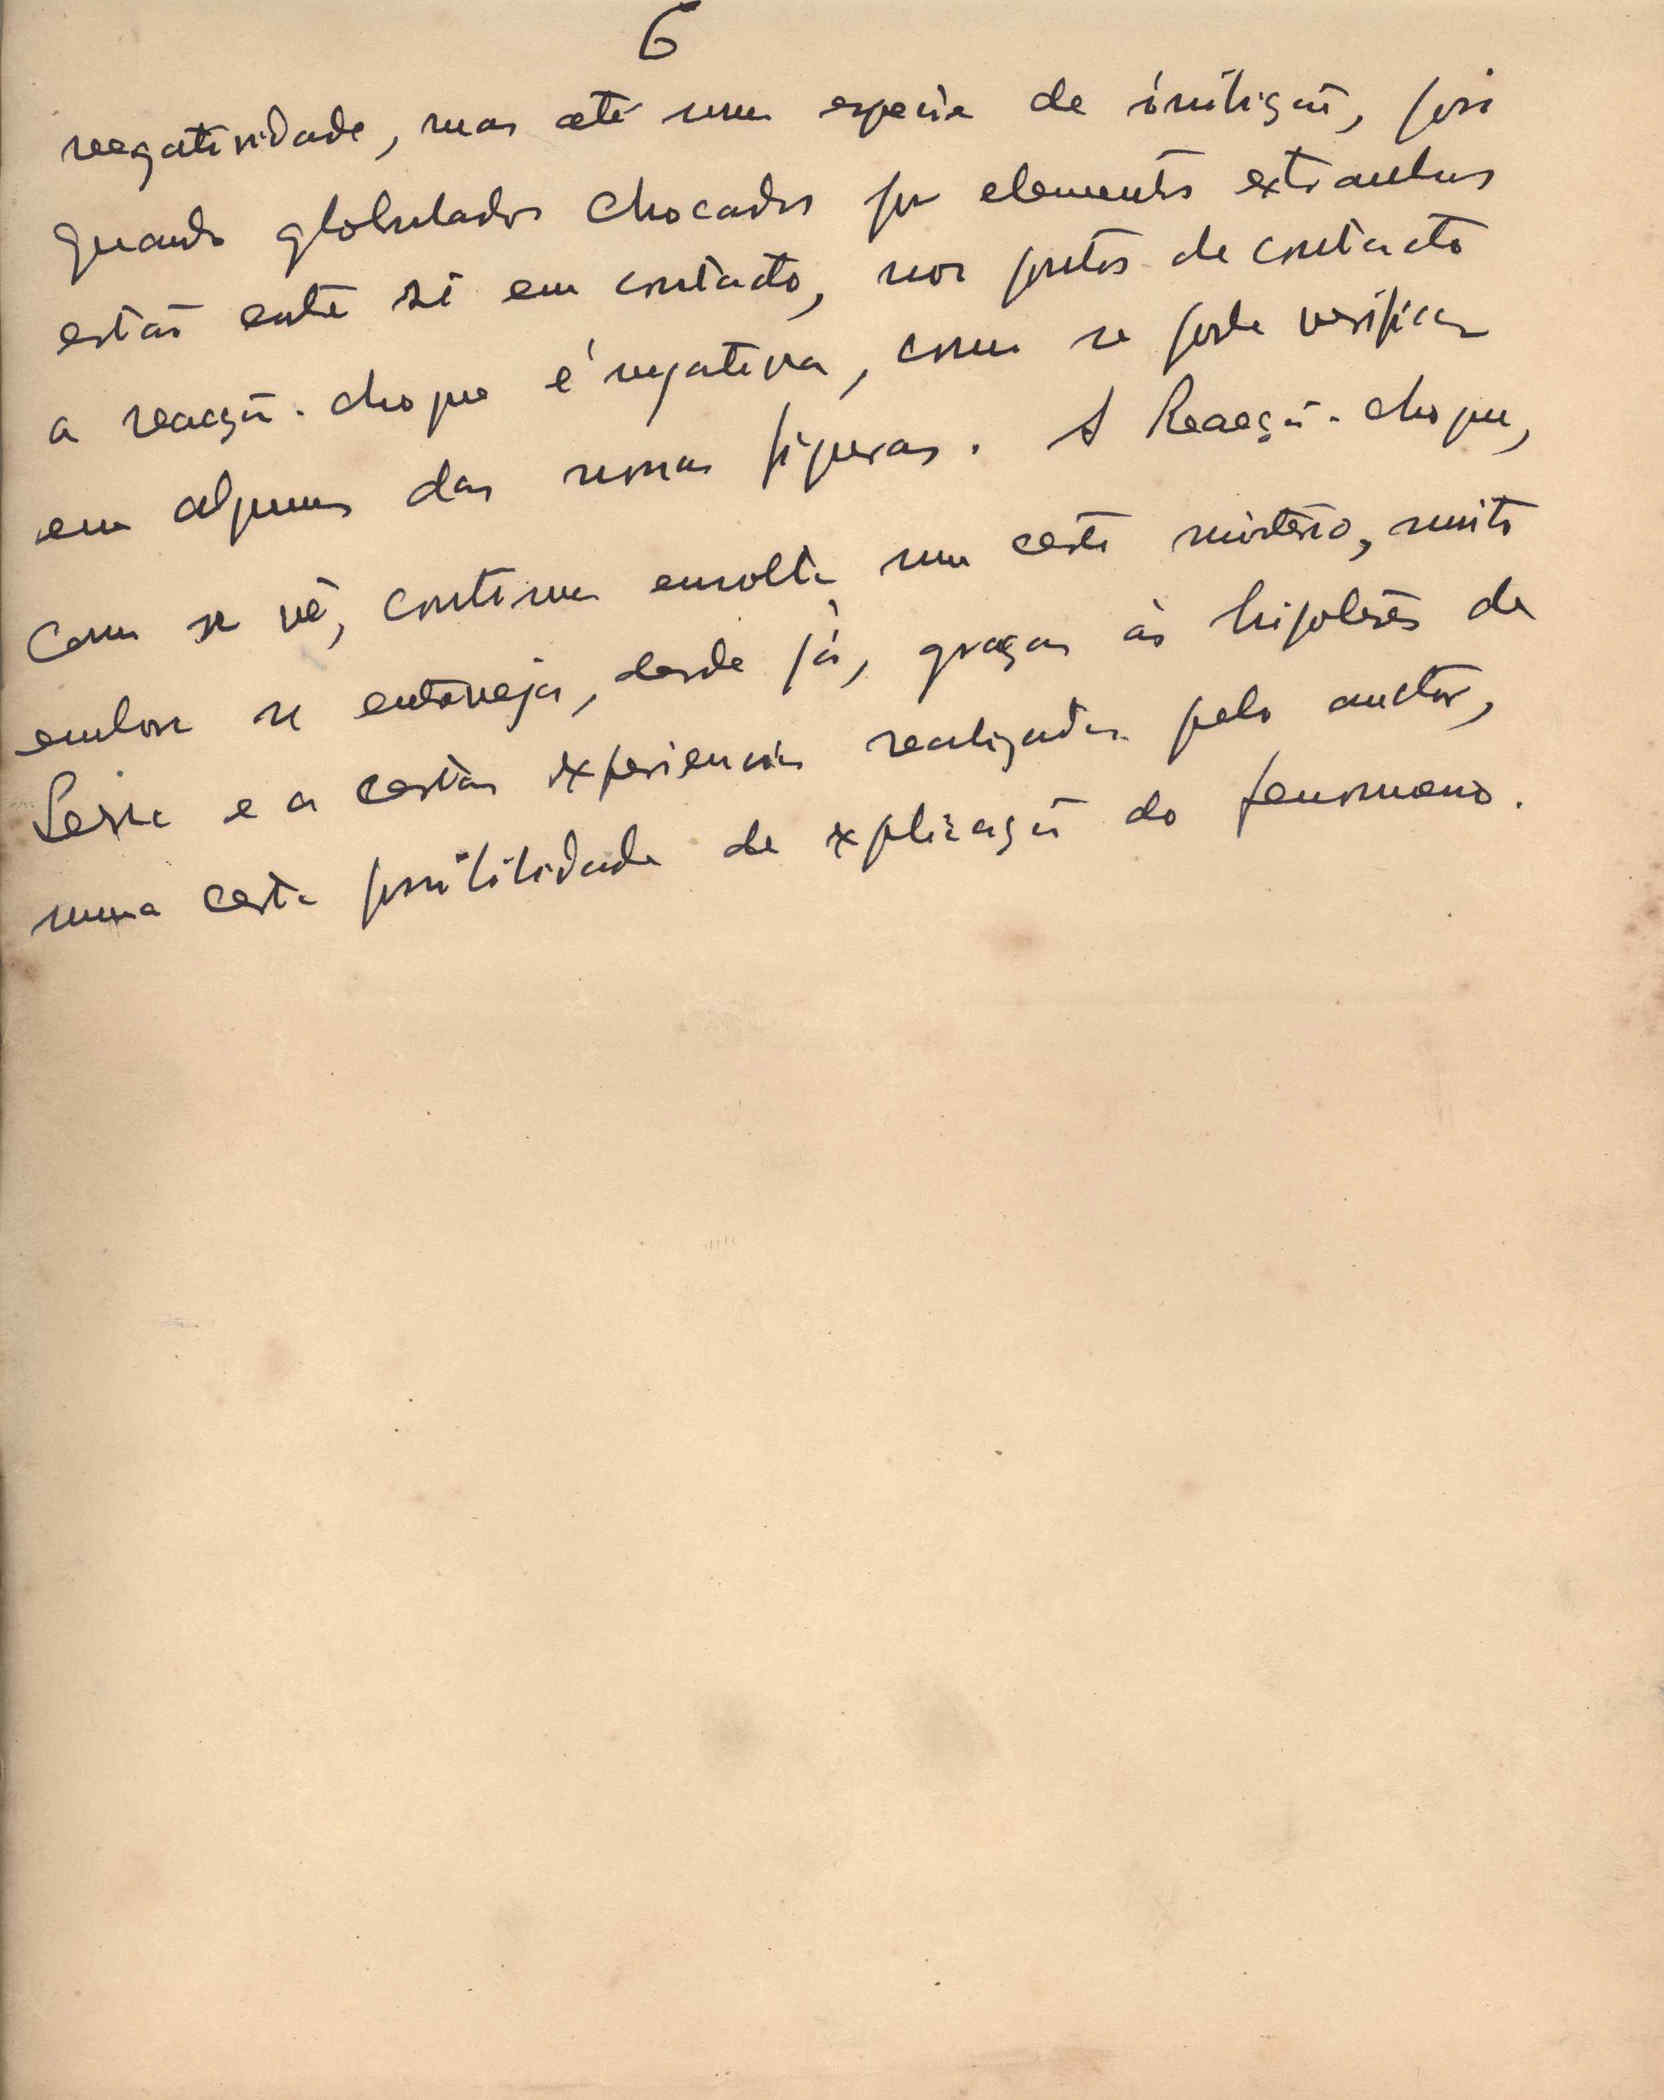 6
negatividade, mas até uma especie de inibição, pois
quando globulados chocados por elementos extranhos
estão entre si em contacto, nos pontos de contacto
a reacção-choque é negativa, como se pode verificar
em algumas das nossas figuras. A Reacção-choque,
como se vê, continua envolta num certo mistério, muito
embora se entreveja, desde já, graças às hipoteses de
e a certas experiencias realizadas pelo auctor,
numa certa possibilidade de explicação do fenomeno.